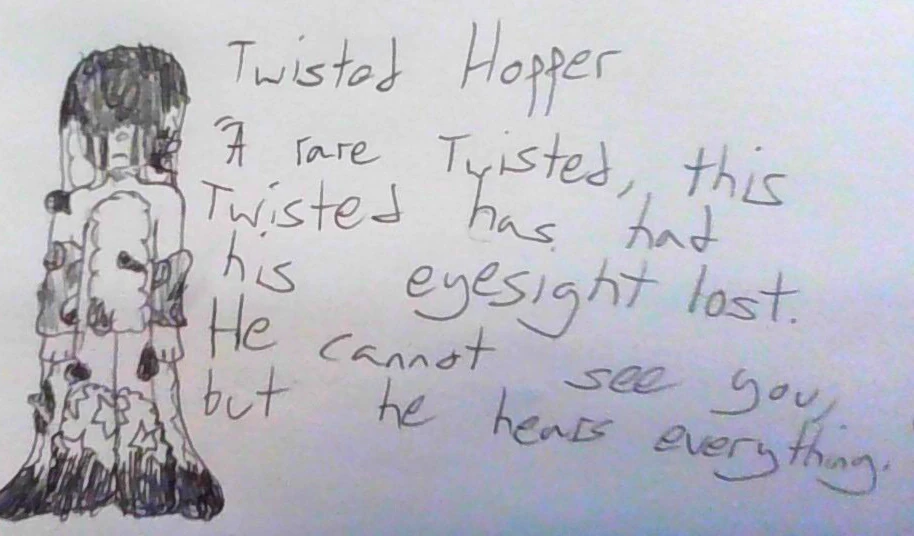 Twisted Hopper
A rare Twisted, this
Twisted has had
his eyesight lost.
He cannot see you,
but he hears everything.